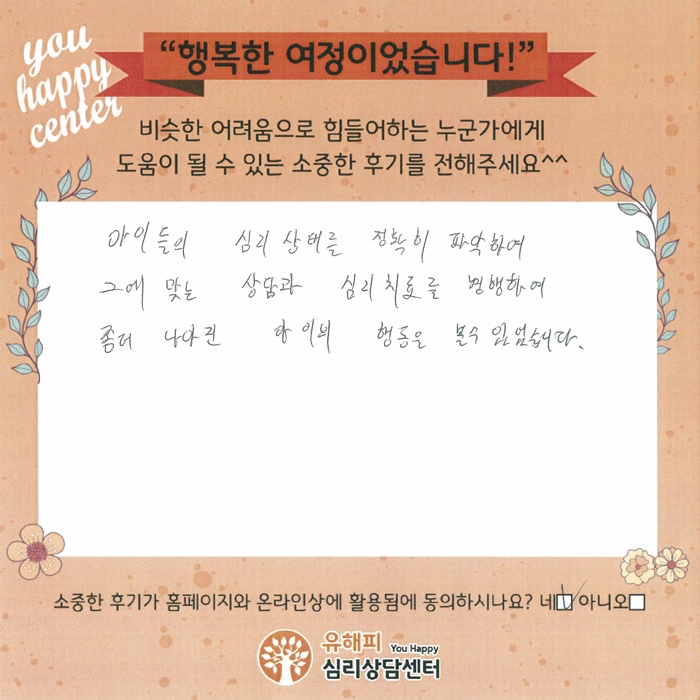 you
happy
center
“행복한 여정이었습니다!”
비슷한 어려움으로 힘들어하는 누군가에게
도움이 될 수 있는 소중한 후기를 전해주세요^^
아이들의 심리 상태를 정확히 파악하여
그에 맞는 상담과 심리치료를 병행하여
좀더 나아진 아이의 행동을 볼수 있었습니다.
소중한 후기가 홈페이지와 온라인상에 활용됨에 동의하시나요? 네 아니오
유해피 You Happy
심리상담센터